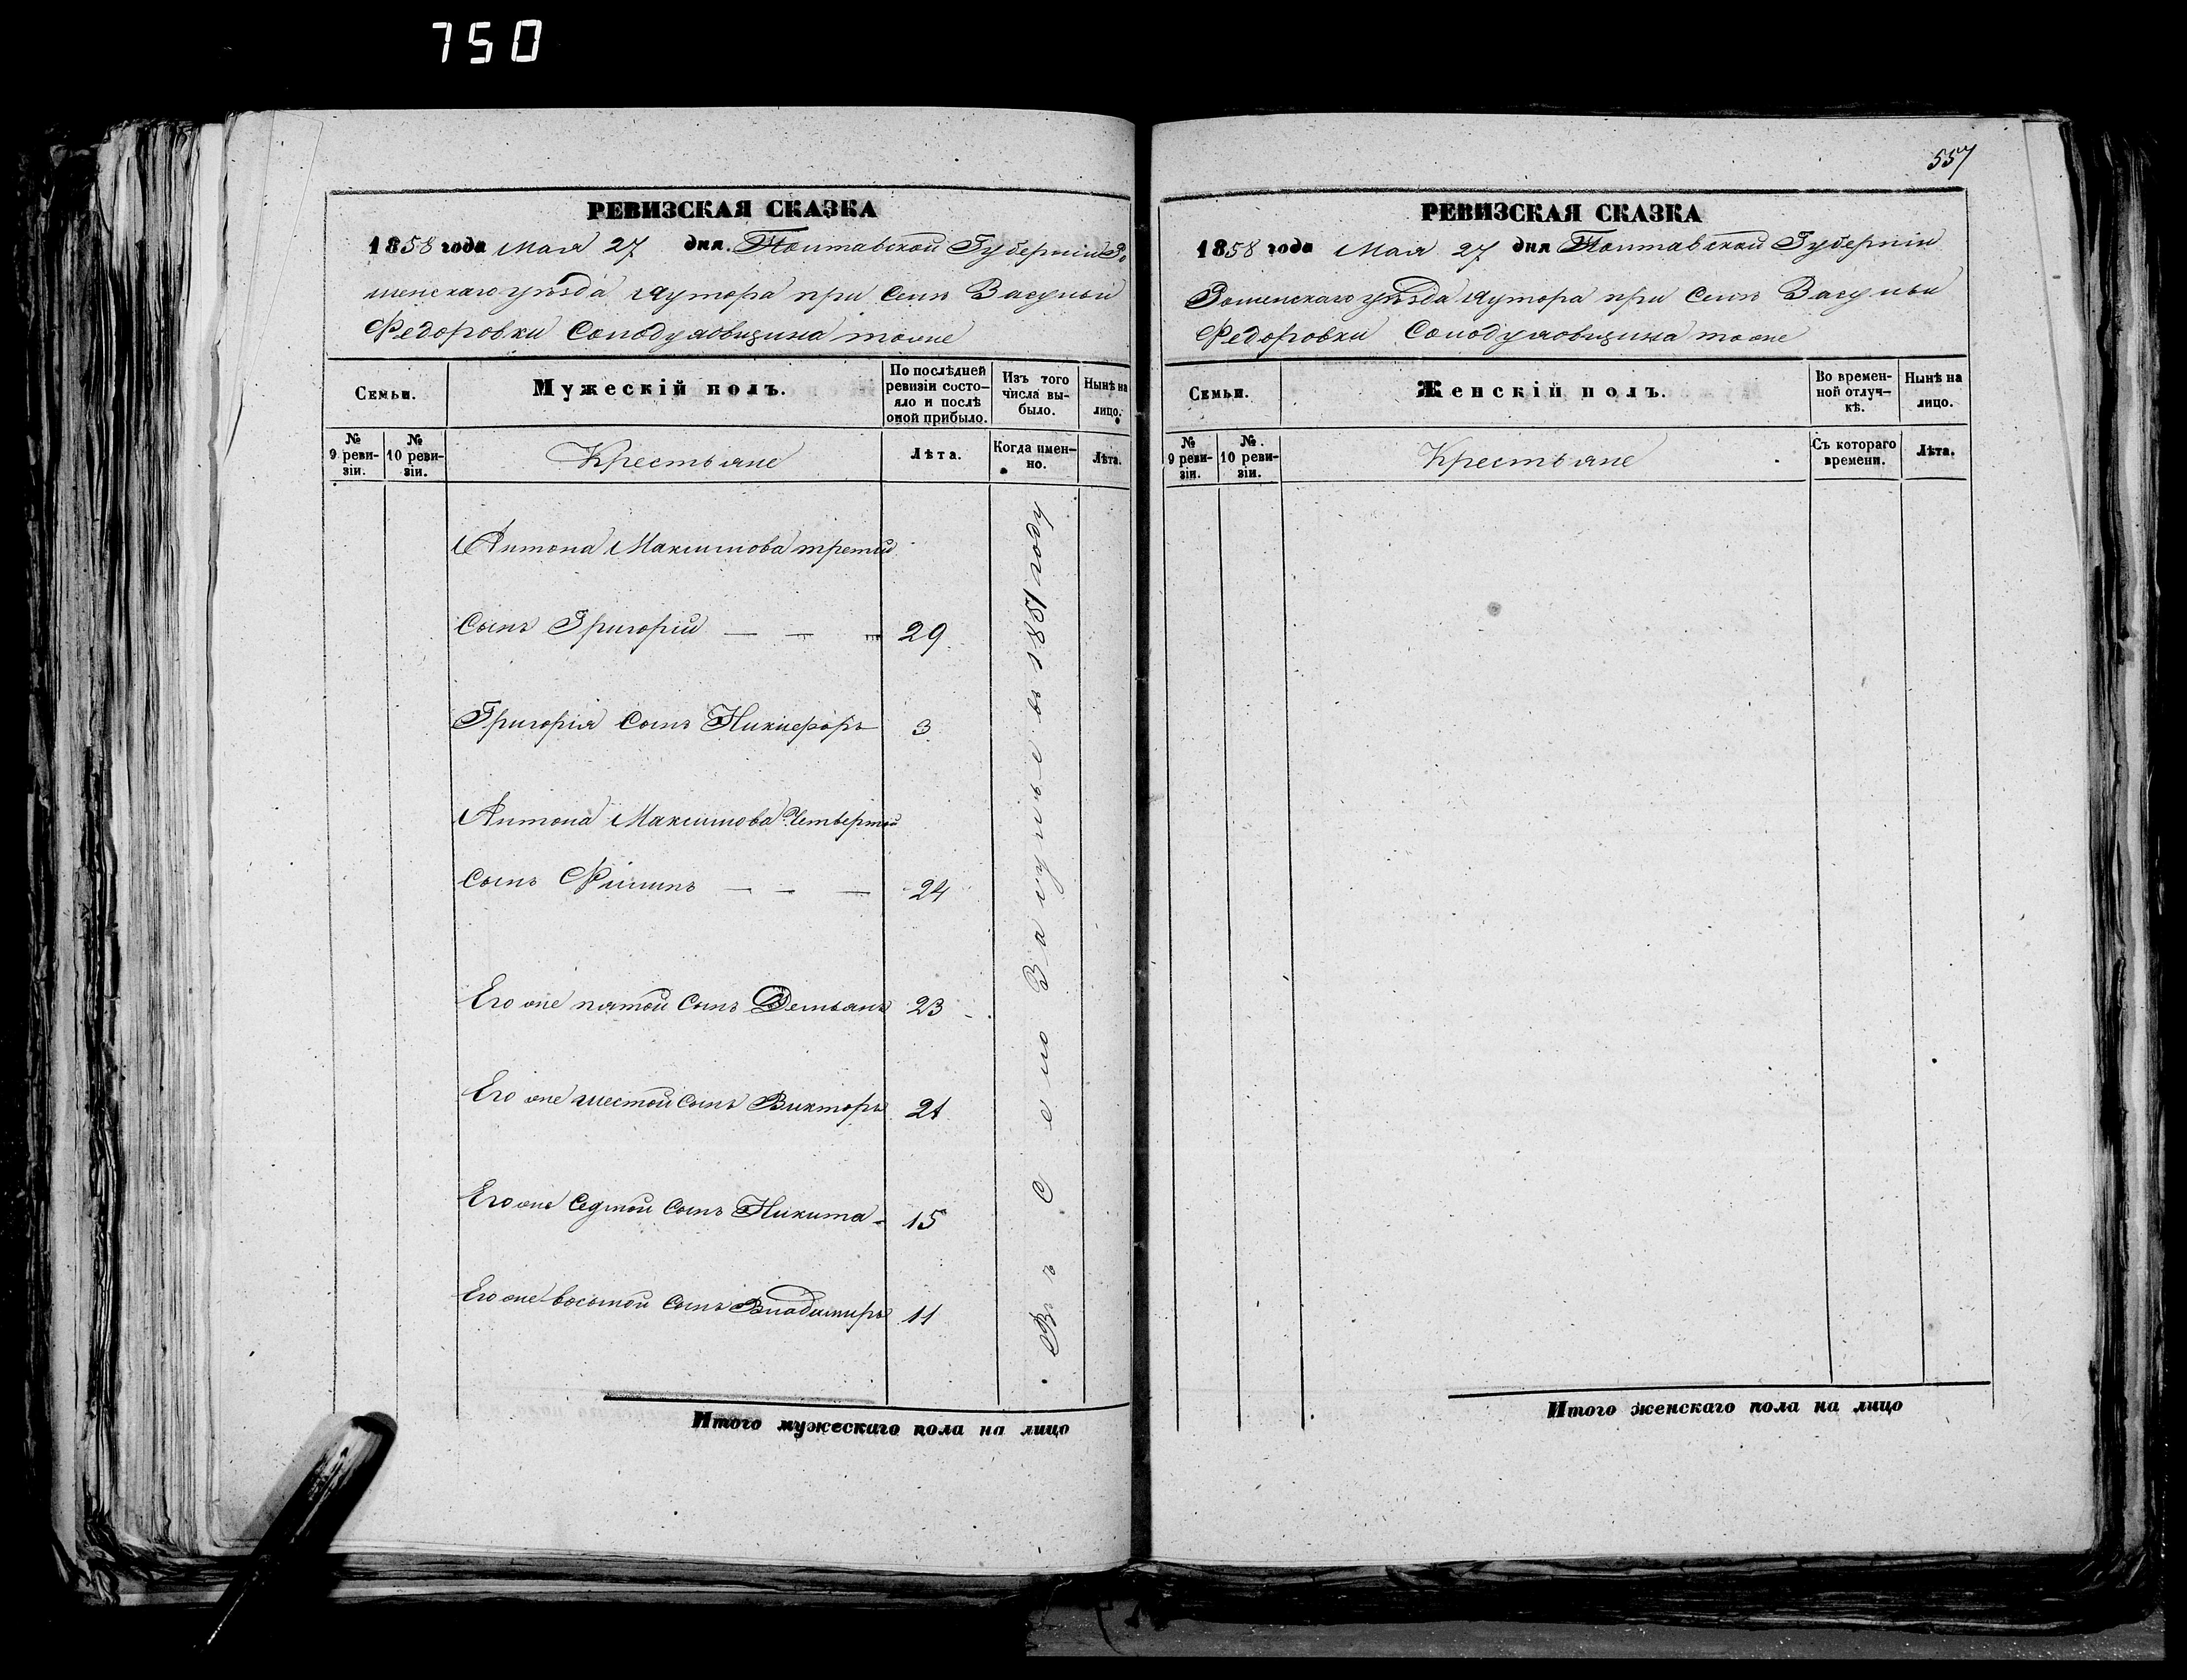 750
557
РЕВИЗСКАЯ СКАЗКА
1858 года Мая 27 дня. Полтавской Губерніи Зо
лоношенскаго уѣзда хутора при Селѣ Васуньи
Федоровки Солодуховщина тоже
Семьи.
Мужескій полъ.
По послѣдней
ревизіи состо-
яло и послѣ
оной прибыло.
Изъ того
числа вы-
было.
Нынѣ на
лицо.
№
9 реви-
зіи.
№
10 реви-
зіи.
Крестьяне
Лѣта.
Когда имен-
но.
Лѣта.
Антона Максимова третій
Сынъ Григорій — — — 29
Григорія Сынъ Никифоръ 3
Антона Максимова Четвертой
Сынъ Филипъ — — — 24
Его же пятой Сынъ Демьянъ 23
Его же шестой Сынъ Викторъ 21
Его же Седмой Сынъ Никита 15
Его же восьмой Сынъ Владимиръ 11
въ 1851 году
Итого мужескаго пола на лицо
РЕВИЗСКАЯ СКАЗКА
1858 года Мая 27 дня Полтавской Губерніи
уѣзда хутора при Селѣ
Федоровки тоже
Семьи.
Женскій полъ.
Во времен-
ной отлуч-
кѣ.
Нынѣ на
лицо.
№
9 реви-
зіи.
№.
10 реви-
зіи.
Крестьяне
Съ котораго
времени.
Лѣта.
Итого женскаго пола на лицо